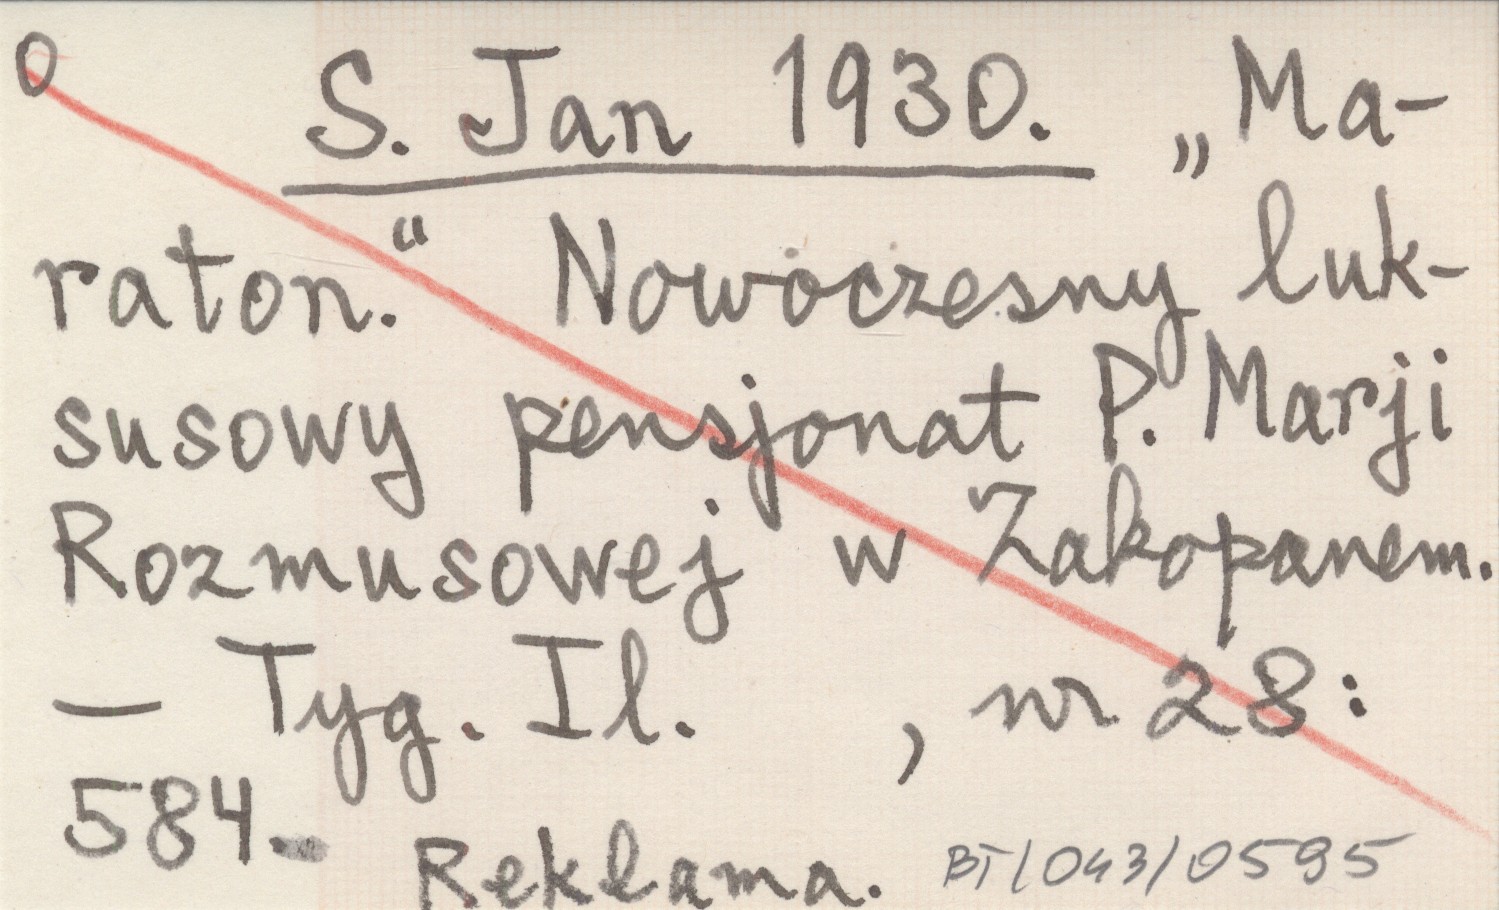 0
S. Jan 1930. „Ma-
raton.“ Nowoczesny luk-
susowy pensjonat P. Marji
Rozmusowej w Zakopanem.
— Tyg. Il. , nr 28:
584.
Reklama. BT/043/0595